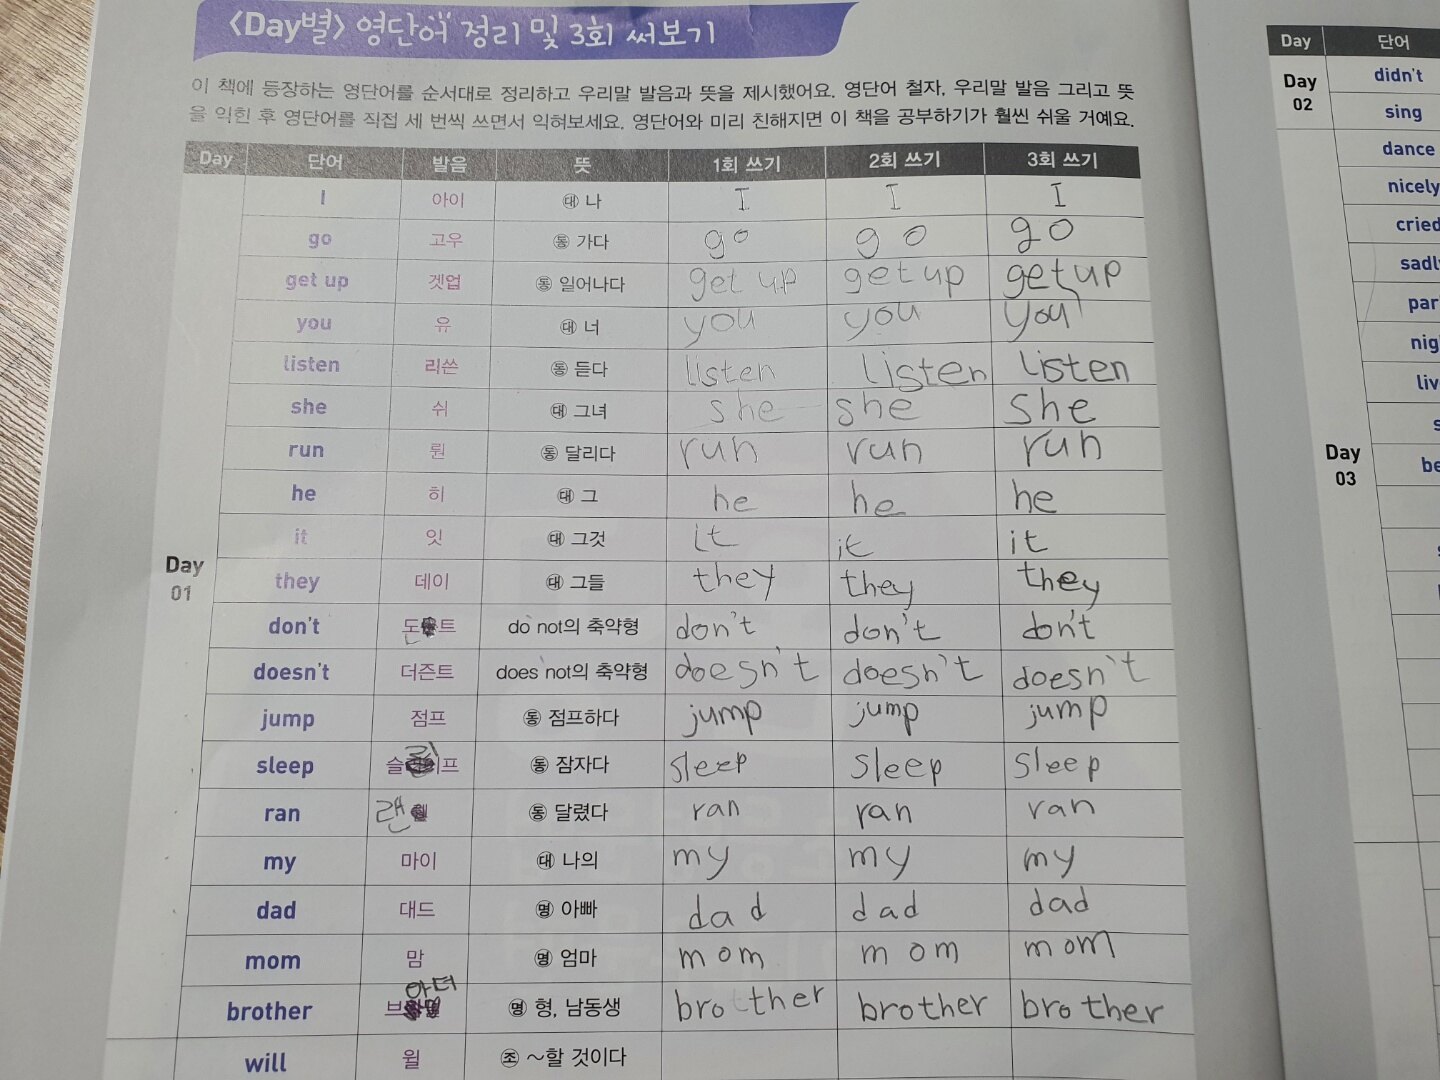 <Day별> 영단어 정리 및 3회 써보기
이 책에 등장하는 영단어를 순서대로 정리하고 우리말 발음과 뜻을 제시했어요. 영단어 철자, 우리말 발음 그리고 뜻
을 익힌 후 영단어를 직접 세 번씩 쓰면서 익혀보세요. 영단어와 미리 친해지면 이 책을 공부하기가 훨씬 쉬울 거예요.
Day 단어 발음 뜻 1회 쓰기 2회 쓰기 3회 쓰기
I 아이 대 나 I I I
go 고우 동 가다 go go go
get up 겟업 동 일어나다 get up get up get up
you 유 대 너 you you you
listen 리쓴 동 듣다 listen listen listen
she 쉬 대 그녀 she she she
run 뤈 동 달리다 run run run
he 히 대 그 he he he
it 잇 대 그것 it it it
Day 01
they 데이 대 그들 they they they
don't 도트 do not의 축약형 don't don't don't
doesn't 더즌트 does not의 축약형 doesn't doesn't doesn't
jump 점프 동 점프하다 jump jump jump
sleep 슬리프 동 잠자다 sleep sleep sleep
ran 랜 동 달렸다 ran ran ran
my 마이 대 나의 my my my
dad 대드 명 아빠 dad dad dad
mom 맘 명 엄마 mom mom mom
brother 브아더 명 형, 남동생 brother brother brother
will 윌 조 ~할 것이다
Day 단어
Day 02
didn't
sing
dance
nicely
cried
Day 03